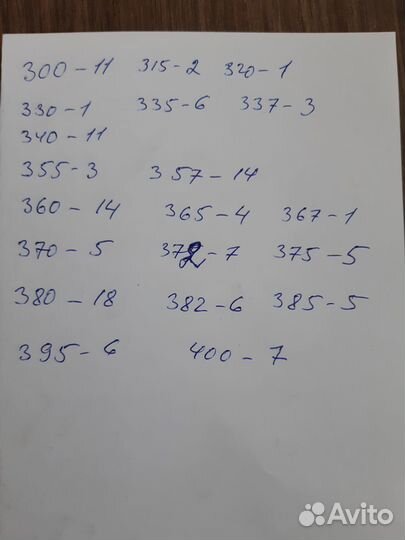 300 - 11 315 - 2 320 - 1
330 - 1 335 - 6 337 - 3
340 - 11
355 - 3 357 - 14
360 - 14 365 - 4 367 - 1
370 - 5 372 - 7 375 - 5
380 - 18 382 - 6 385 - 5
395 - 6 400 - 7
Avito